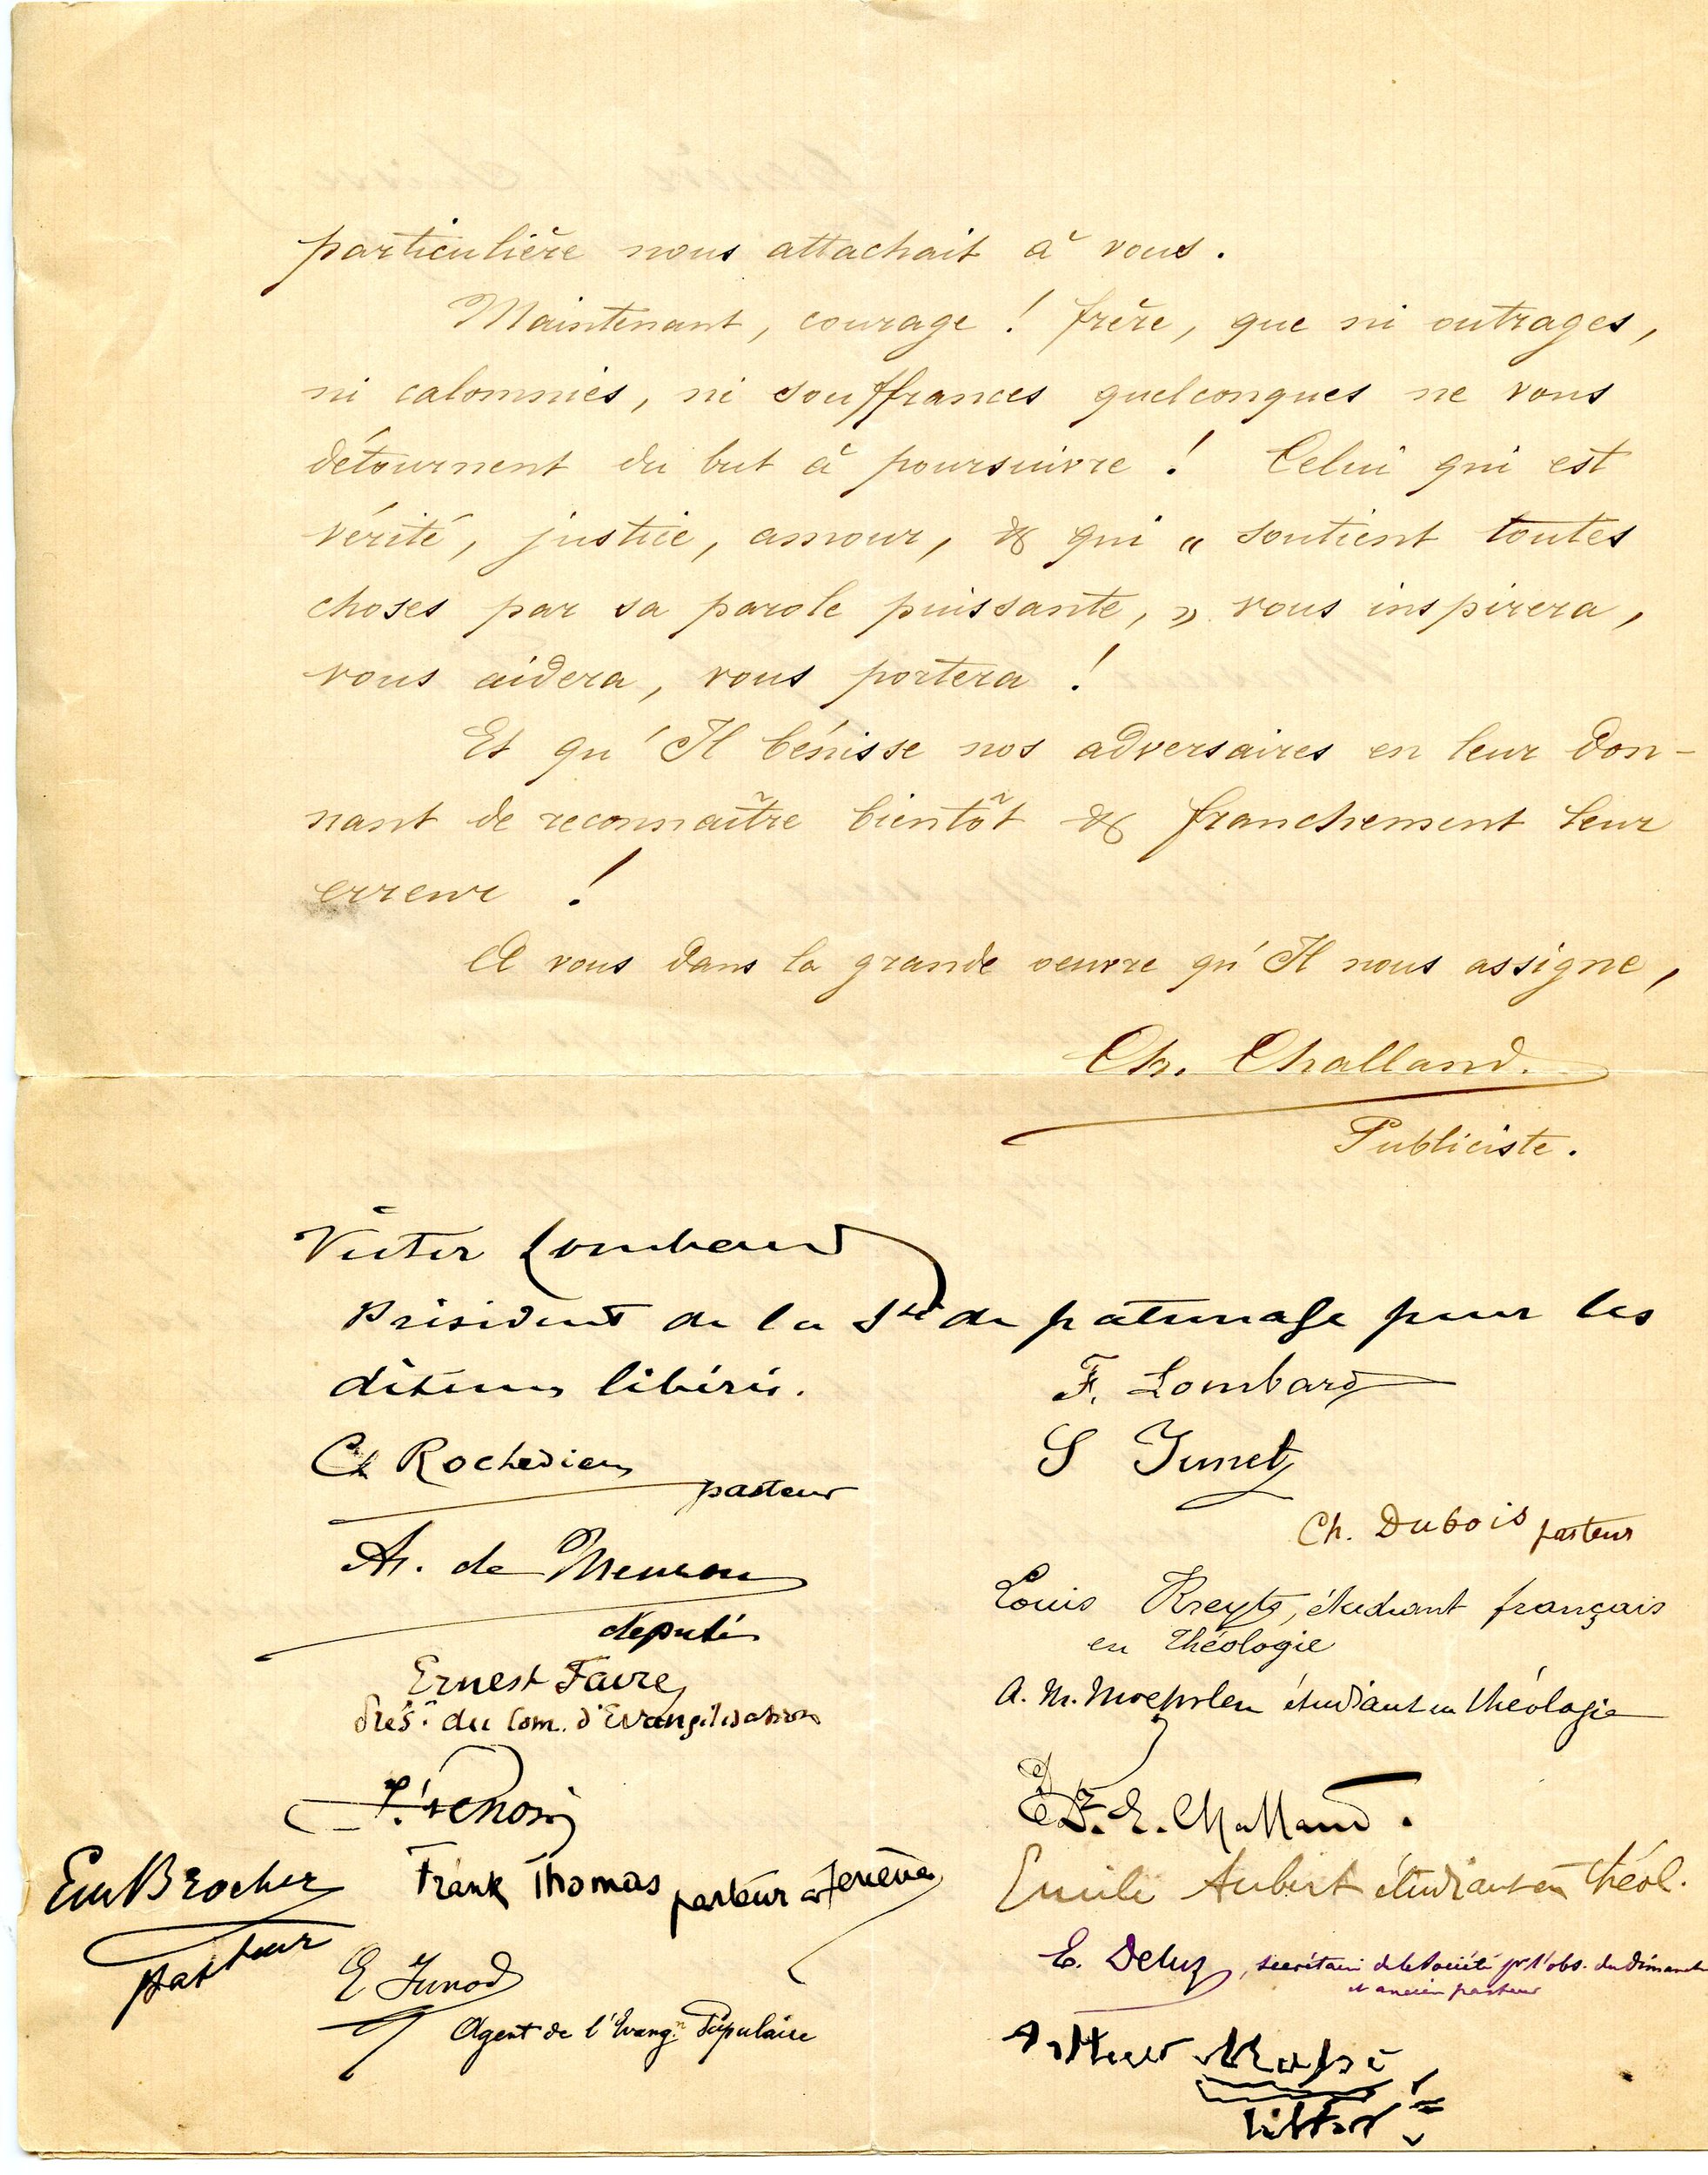 particulière nous attachait à vous.
Maintenant, courage ! frère, que ni outrages,
ni calomnies, ni souffrances quelconques ne vous
détournent du but à poursuivre ! Celui qui est
vérité, justice, amour, & qui « soutient toutes
choses par sa parole puissante, » vous inspirera,
vous aidera, vous portera !
Et qu'Il bénisse nos adversaires en leur don-
nant de reconnaître bientôt & franchement leur
erreur !
A vous dans la grande oeuvre qu'Il nous assigne,
Ch. Challand.
Publiciste.
Victor Lombard
Président de la Sté de patronage pour les
détenus libérés.
F. Lombard
Ch Rochedieu
pasteur
S Junet
Ch. Dubois pasteur
A. de Meuron
député
Louis Kreyts, étudiant français
en théologie
Ernest Favre
Prés. du Com. d'Evangélisation
A. M. étudiant en théologie
E. Challand.
Em Brocher
pasteur
Frank Thomas pasteur à Genève
Emile Aubert étudiant en théol.
E. Deluz, secrétaire de la Société pr l'obs. du Dimanche
et ancien pasteur
E Junod
Agent de l'Evangn Populaire
Arthur